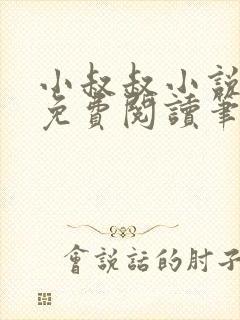 小叔叔小說
免費閱讀筆
會說話的肘子